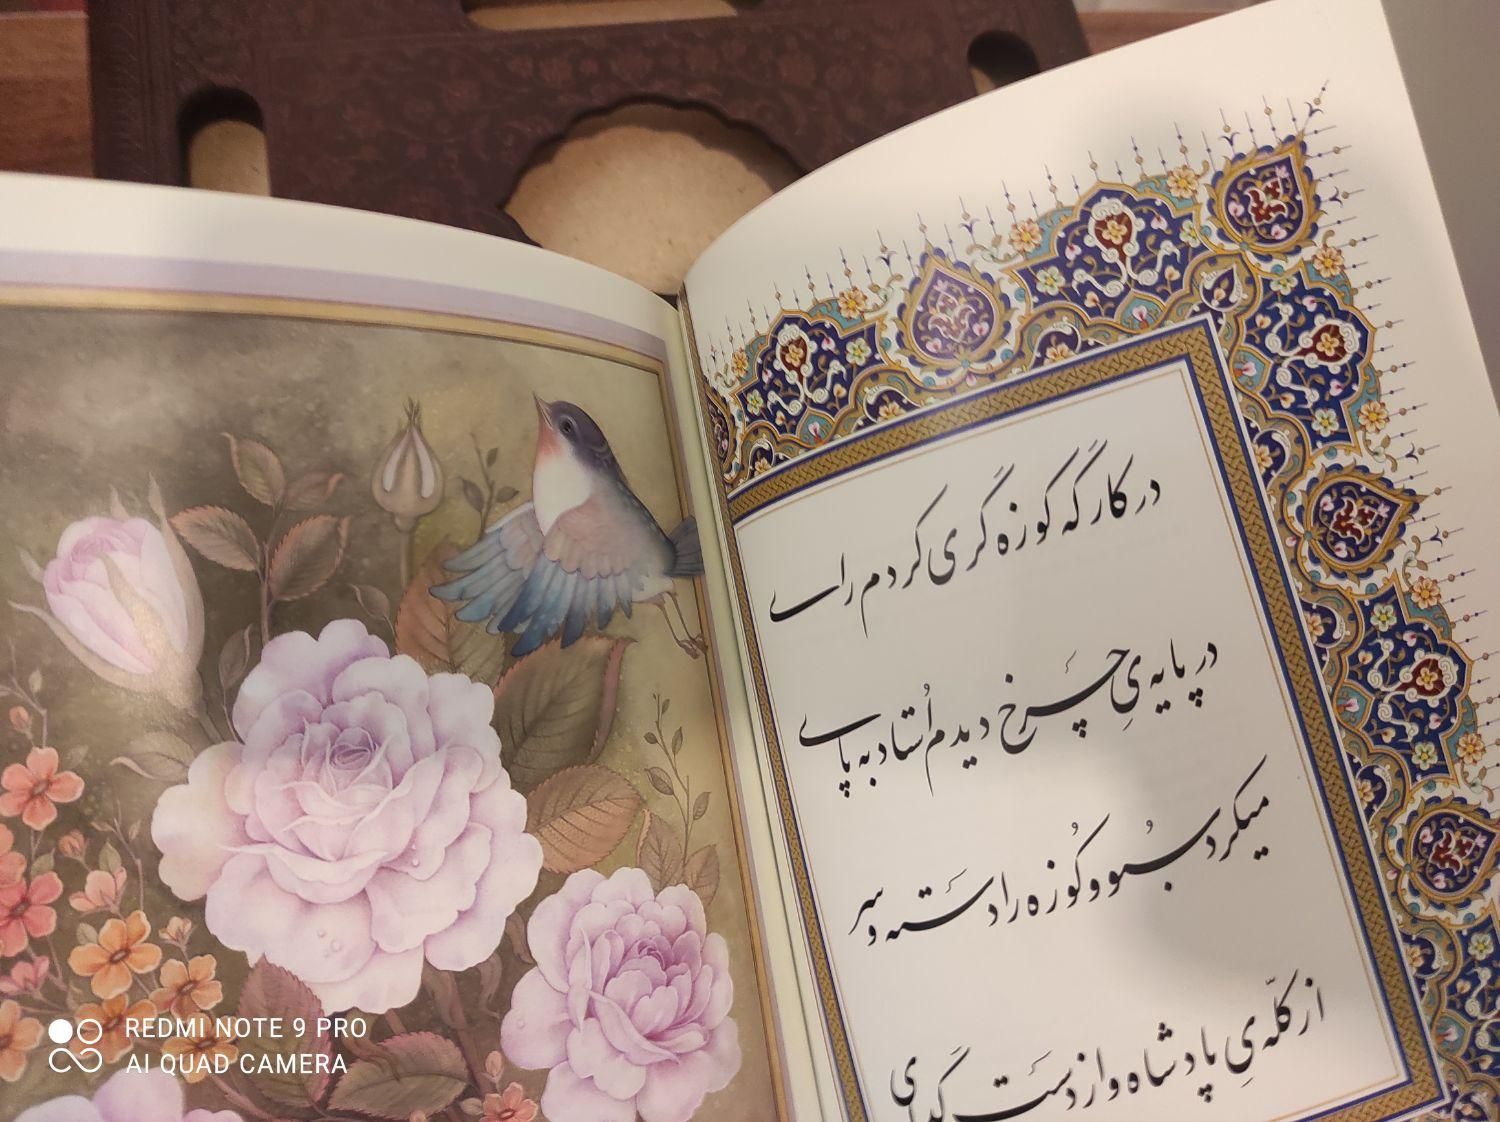 در کارگه کوزه‌گَری کردم رای
در پایه‌یِ چَرخ دیدم اُستاد به پای
میکرد سبُو و کُوزه را دَسته و سر
از کلّه‌یِ پادشاه و از دَست گدای
REDMI NOTE 9 PRO
AI QUAD CAMERA